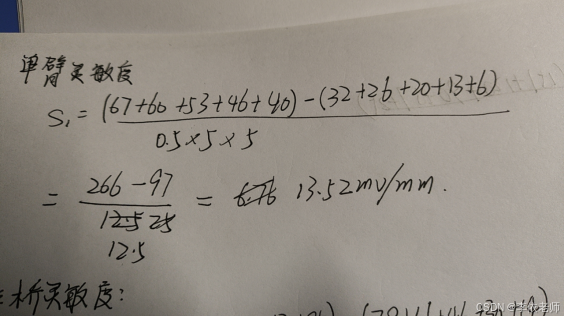 单臂灵敏度
S₁ = (67+60+53+46+40)-(32+26+20+13+6)
0.5×5×5
= 266-97 = 13.52mv/mm.
12.5 25
12.5
桥灵敏度:
CSDN @李依老师